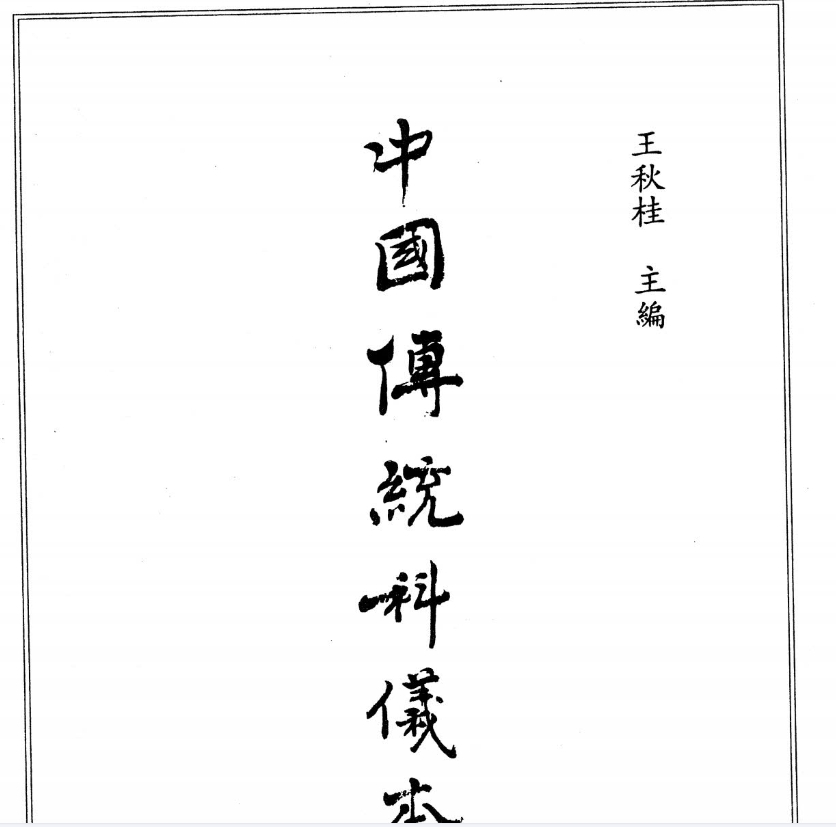 王秋桂 主編
中國傳統科儀本